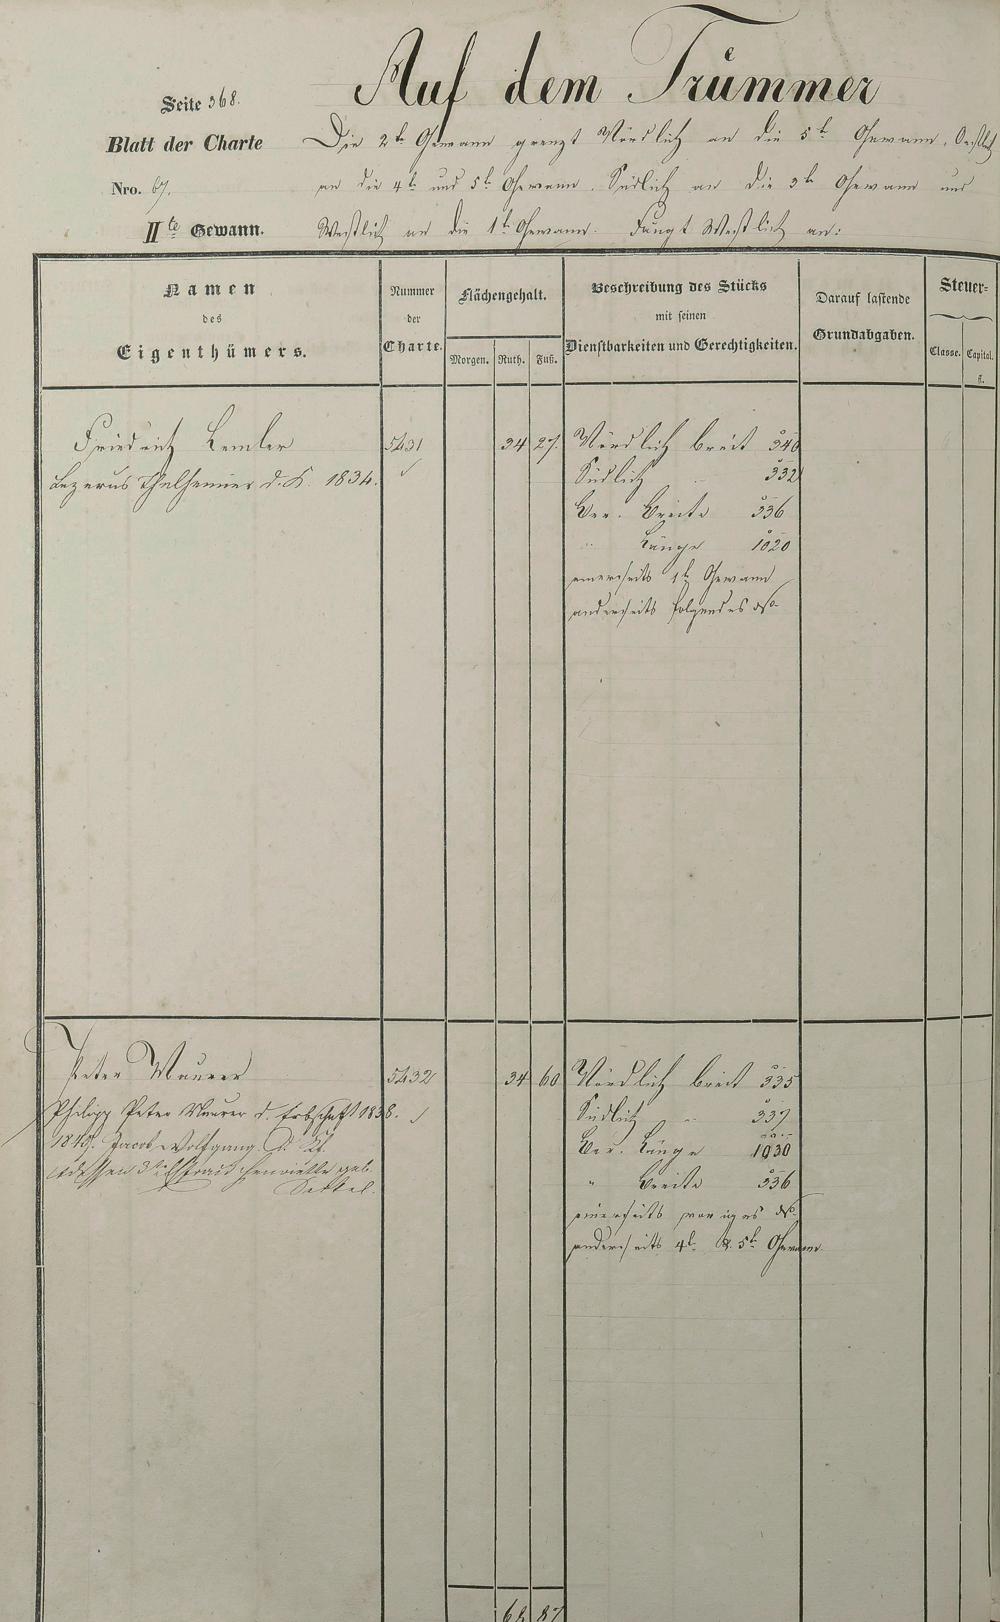 Auf dem Trümmer
Seite 368.
Blatt der Charte
Nro. 67.
IIte Gewann.
Die 2te Gewann grenzt Nördlich an die 5te Gewann, Oestlich
an die 4te und 5te Gewann. Südlich an die 3te Gewann und
Westlich an die 1te Gewann. Fängt Westlich an:
Namen
des
Eigenthümers.
Nummer
der
Charte.
Flächengehalt.
Morgen. Ruth. Fuß.
Beschreibung des Stücks
mit seinen
Dienstbarkeiten und Gerechtigkeiten.
Darauf lastende
Grundabgaben.
Steuer=
Classe. Capital.
fl.
Friedrich Lemler 5431 34 27. Nördlich breit 340
Lazarus Thalheimer d. K. 1834. Südlich " 332
Ber. Breite 336
" Länge 1020
einerseits 1te Gewann
anderseits folgendes
Peter Maurer 5432 34 60 Nördlich breit 335
Philipp Peter Maurer d. Erbschaft 1838. Südlich " 337
1845. Jacob Wolfgang d. Kf. Ber. Länge 1030
" Breite 336
dessen Ehefrau Henriette geb.
einerseits voriges
anderseits 4te & 5te Gewann
68 87